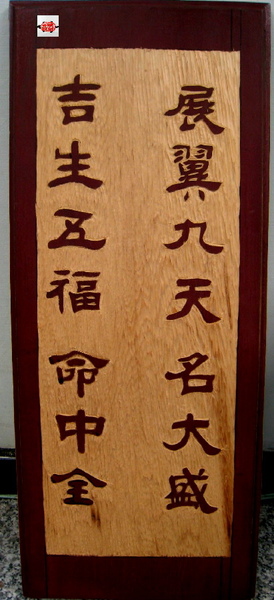 展翼九天名大盛
吉生五福命中全